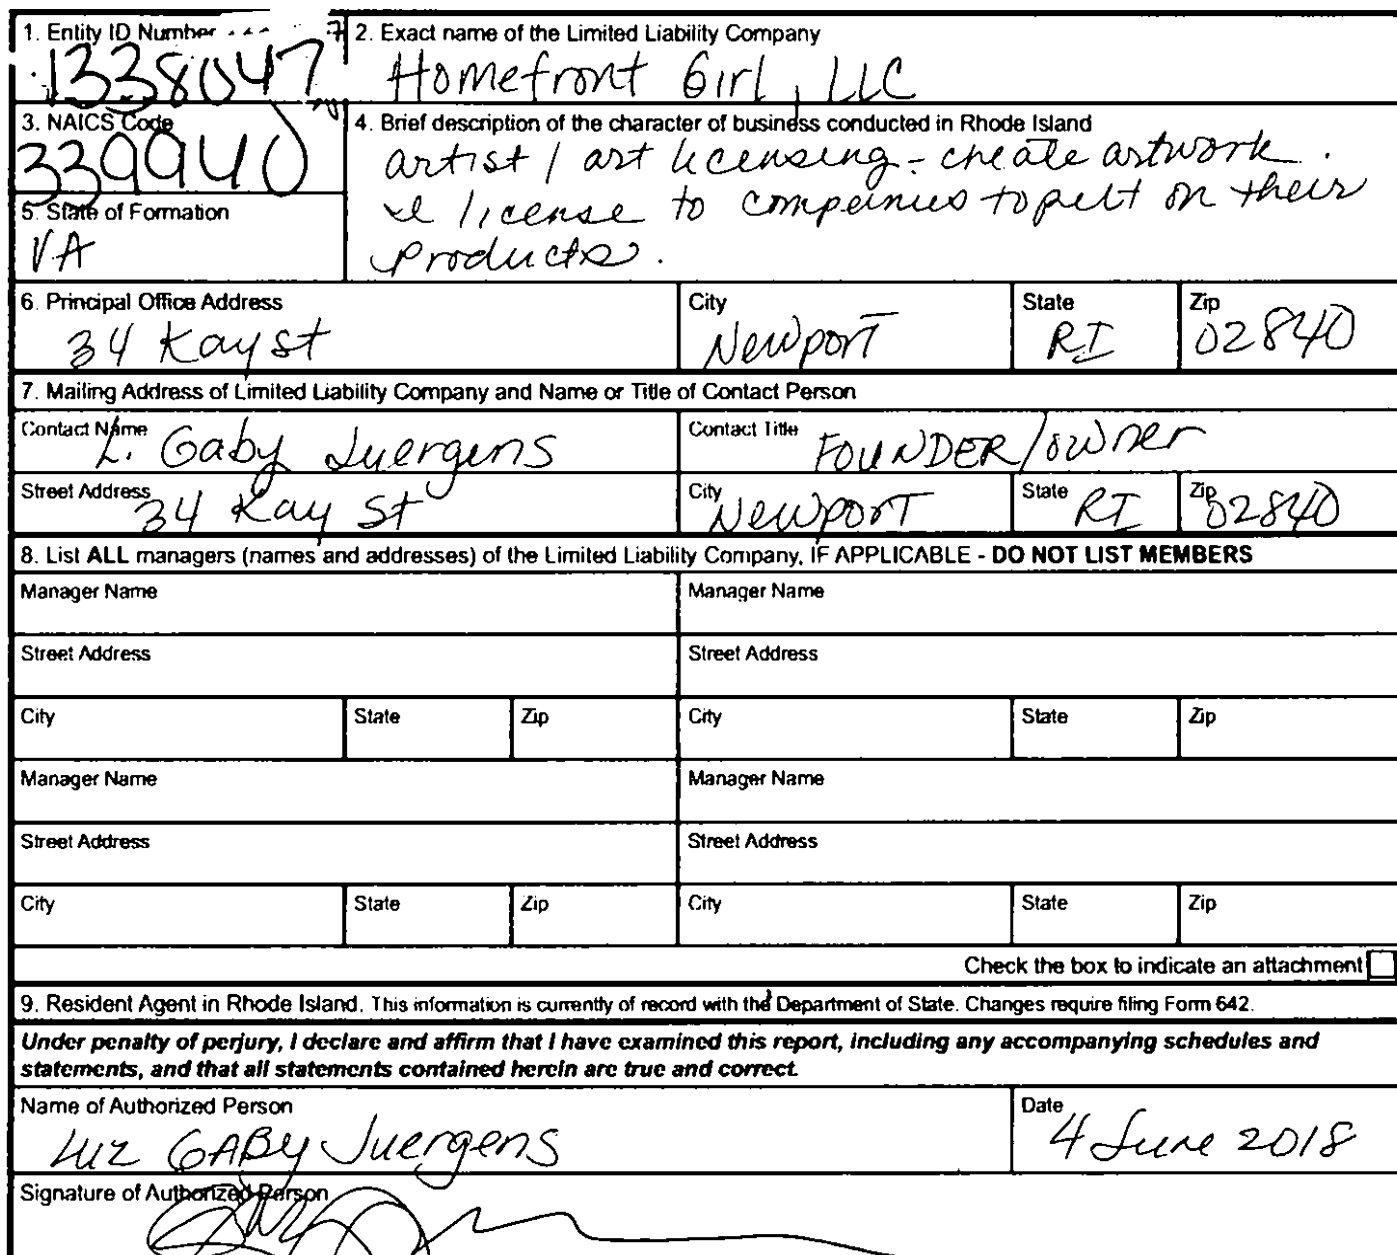 1. Entity ID Number
1338047
2. Exact name of the Limited Liability Company
Homefront Girl, LLC
3. NAICS Code
339940
4. Brief description of the character of business conducted in Rhode Island
artist / art licensing - create artwork.
license to companies to put on their
products.
5. State of Formation
VA
6. Principal Office Address
34 Kay St
City
Newport
State
RI
Zip
02840
7. Mailing Address of Limited Liability Company and Name or Title of Contact Person
Contact Name
L. Gaby Juergens
Contact Title
FOUNDER/owner
Street Address
34 Kay St
City
Newport
State
RI
Zip
02840
8. List ALL managers (names and addresses) of the Limited Liability Company, IF APPLICABLE - DO NOT LIST MEMBERS
Manager Name
Manager Name
Street Address
Street Address
City State Zip City State Zip
Manager Name
Manager Name
Street Address
Street Address
City State Zip City State Zip
Check the box to indicate an attachment
9. Resident Agent in Rhode Island. This information is currently of record with the Department of State. Changes require filing Form 642.
Under penalty of perjury, I declare and affirm that I have examined this report, including any accompanying schedules and
statements, and that all statements contained herein are true and correct.
Name of Authorized Person
Luz GABY Juergens
Date
4 June 2018
Signature of Authorized Person